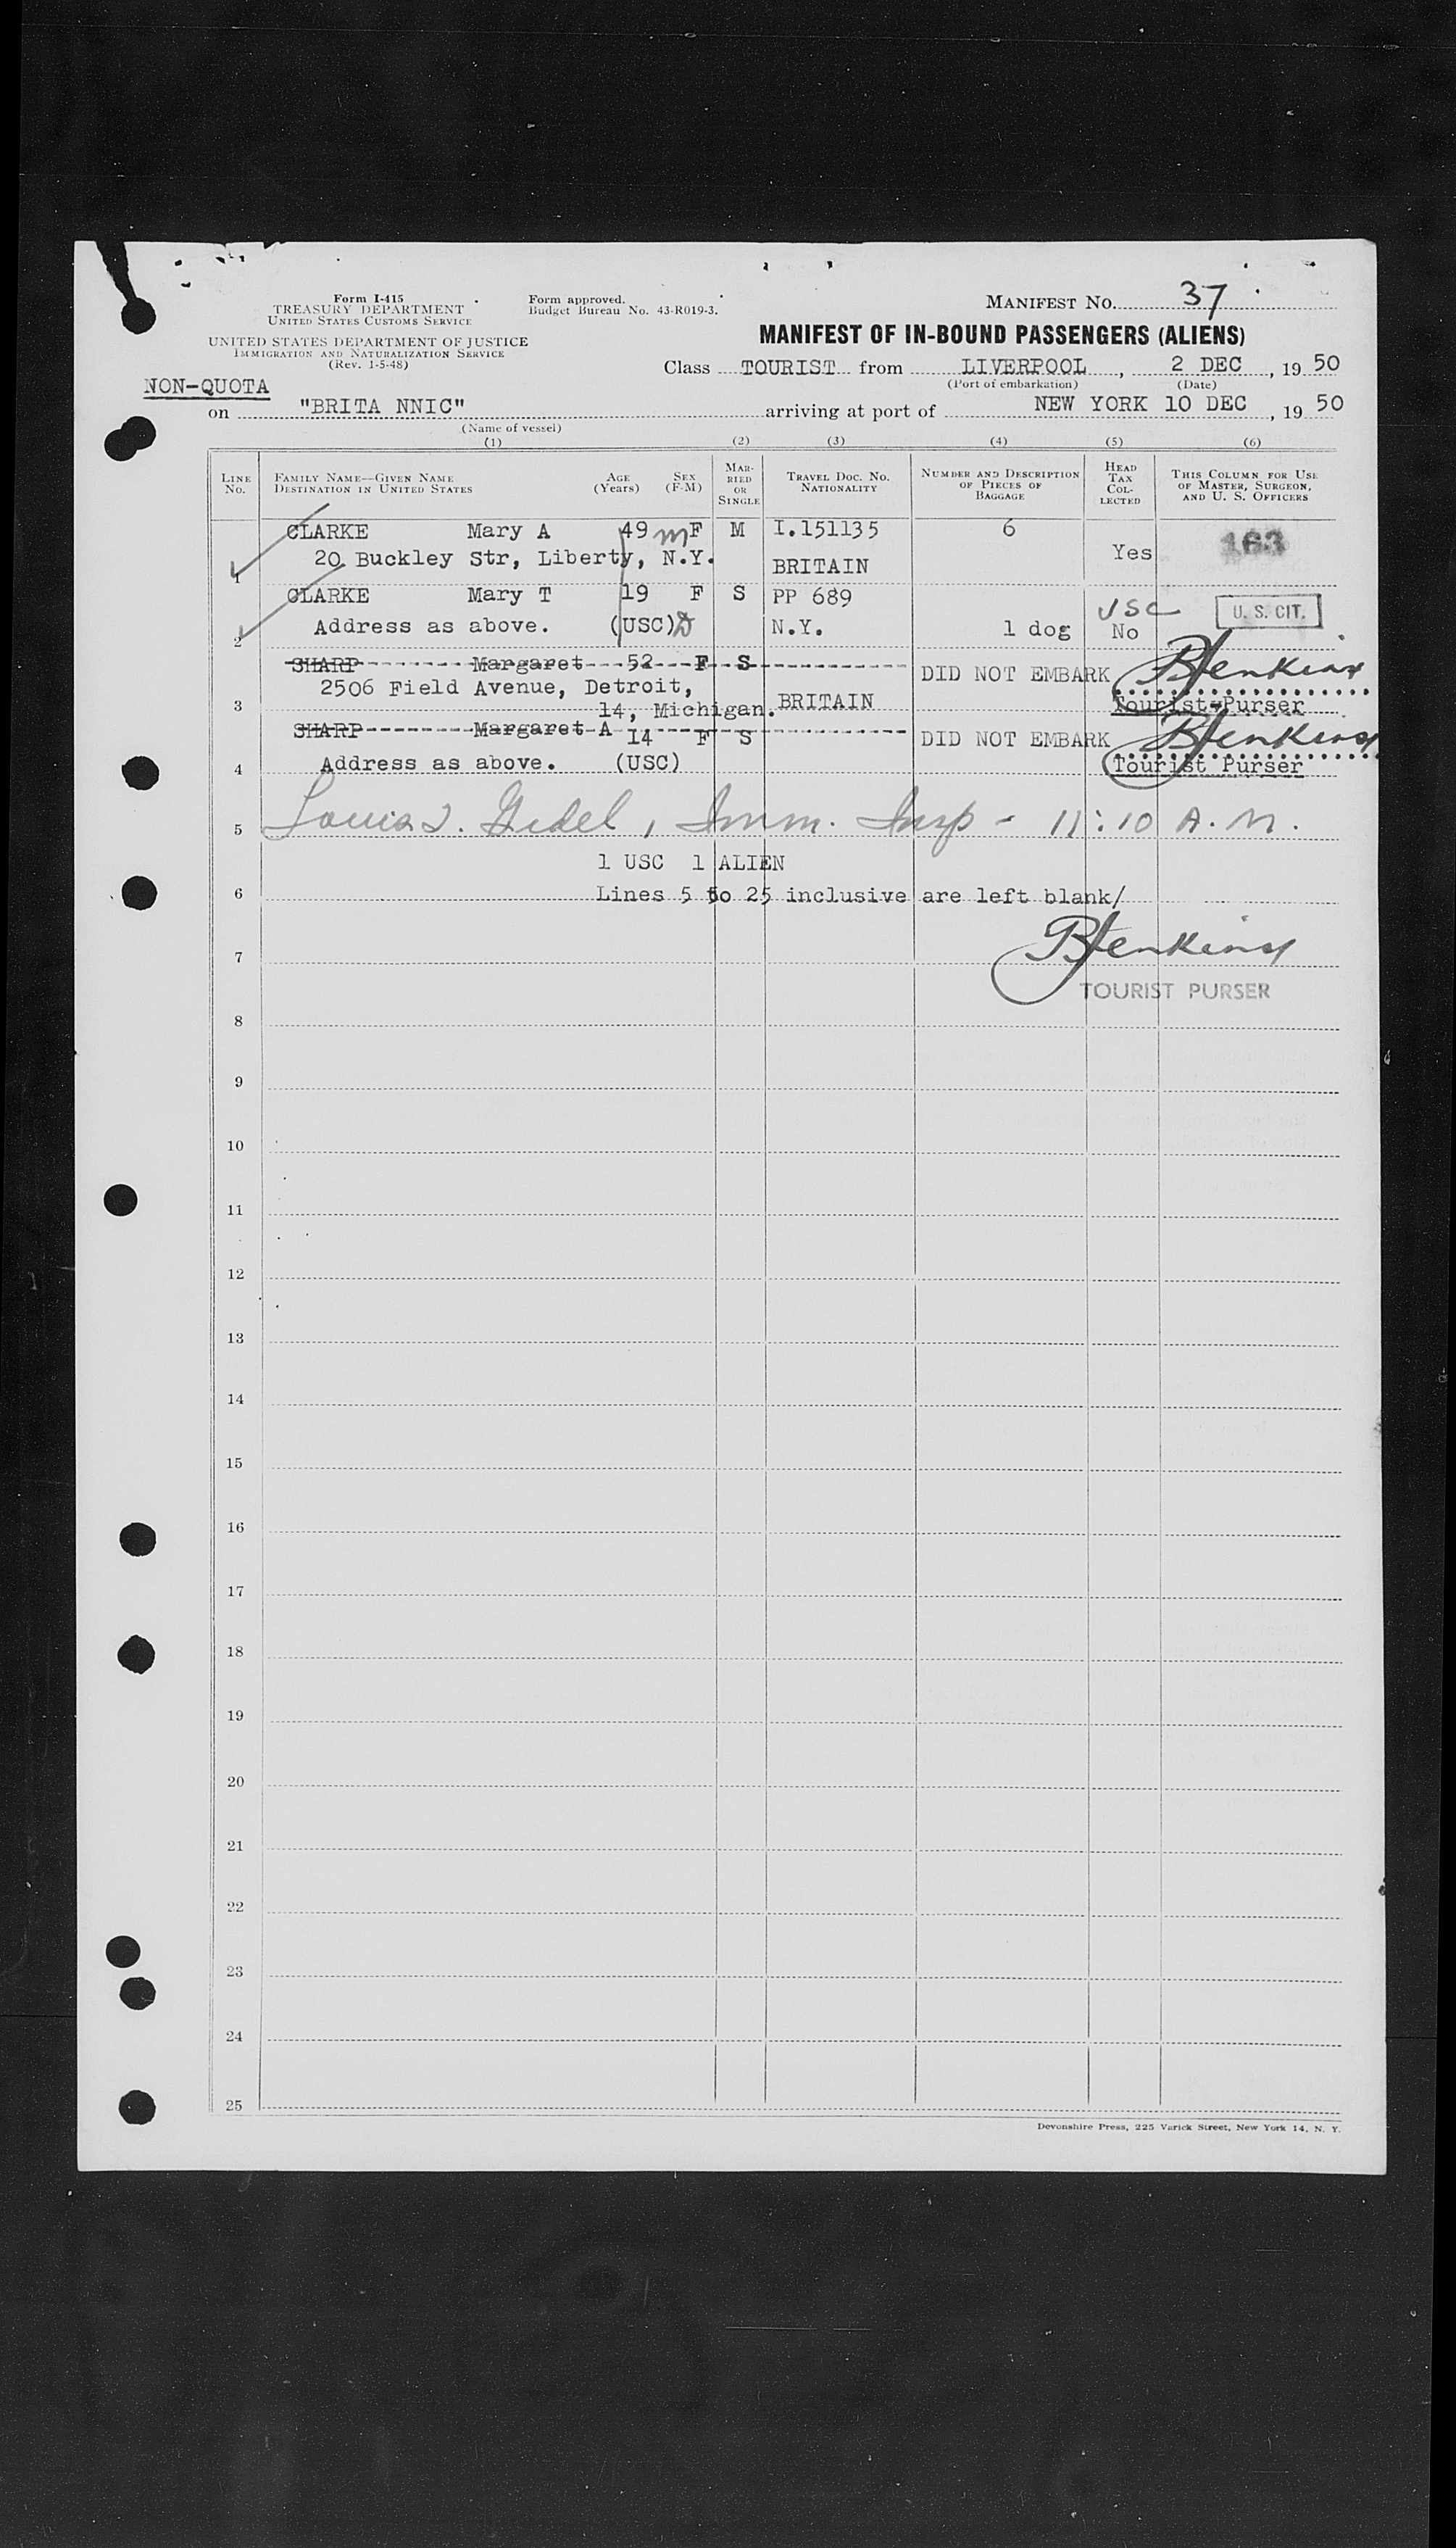 Form I-415
TREASURY DEPARTMENT
UNITED STATES CUSTOMS SERVICE
UNITED STATES DEPARTMENT OF JUSTICE
IMMIGRATION AND NATURALIZATION SERVICE
(Rev. 1-5-48)
Form approved.
Budget Bureau No. 43-R019-3.
MANIFEST NO. 37
MANIFEST OF IN-BOUND PASSENGERS (ALIENS)
Class TOURIST from LIVERPOOL, 2 DEC, 19 50
(Port of embarkation) (Date)
NON-QUOTA
on "BRITA NNIC" arriving at port of NEW YORK 10 DEC, 19 50
(Name of vessel)
(1) (2) (3) (4) (5) (6)
LINE No. FAMILY NAME—GIVEN NAME DESTINATION IN UNITED STATES AGE (Years) SEX (F-M) MARRIED OR SINGLE TRAVEL DOC. NO. NATIONALITY NUMBER AND DESCRIPTION OF PIECES OF BAGGAGE HEAD TAX COLLECTED THIS COLUMN FOR USE OF MASTER, SURGEON, AND U. S. OFFICERS
CLARKE Mary A 49 m F M I.151135 6 163
20 Buckley Str, Liberty, N.Y. BRITAIN Yes
1
CLARKE Mary T 19 F S PP 689 USC U. S. CIT.
2 Address as above. (USC) N.Y. 1 dog No
SHARP Margaret 52 F S DID NOT EMBARK BJenkins
2506 Field Avenue, Detroit,
3 14, Michigan. BRITAIN Tourist Purser
SHARP Margaret A 14 F S DID NOT EMBARK BJenkins
4 Address as above. (USC) Tourist Purser
5 Louis J. Gidel, Imm. Insp - 11:10 A.M.
1 USC 1 ALIEN
6 Lines 5 to 25 inclusive are left blank/
7 BJenkins
TOURIST PURSER
8
9
10
11
12
13
14
15
16
17
18
19
20
21
22
23
24
25
Devonshire Press, 225 Varick Street, New York 14, N. Y.